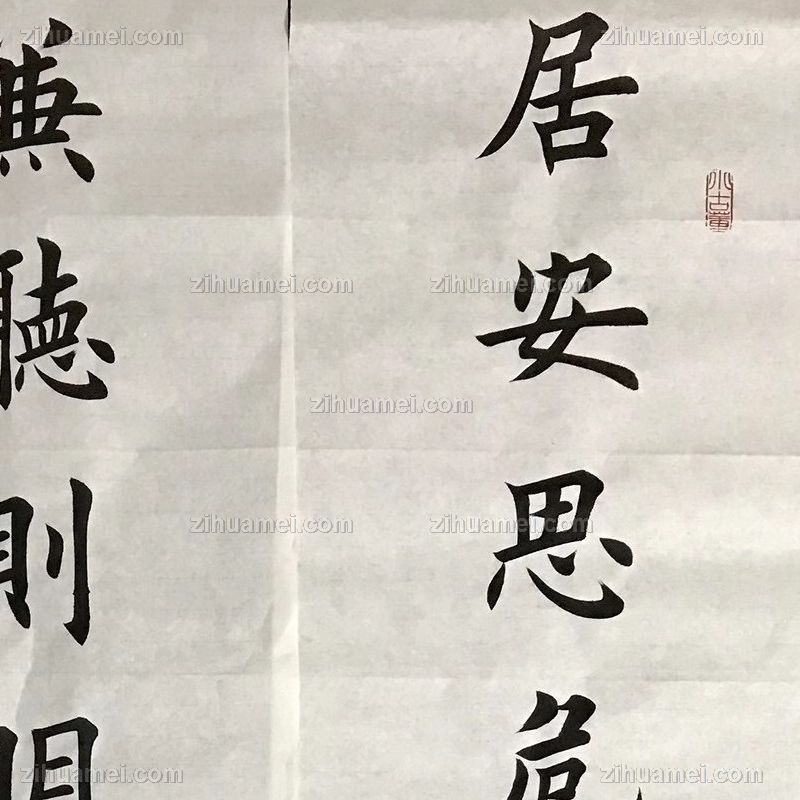 居安思危
兼聽則明
小古董
zihuamei.com
zihuamei.com
zihuamei.com
zihuamei.com
zihuamei.com
zihuamei.com
zihuamei.com
zihuamei.com
zihuamei.com